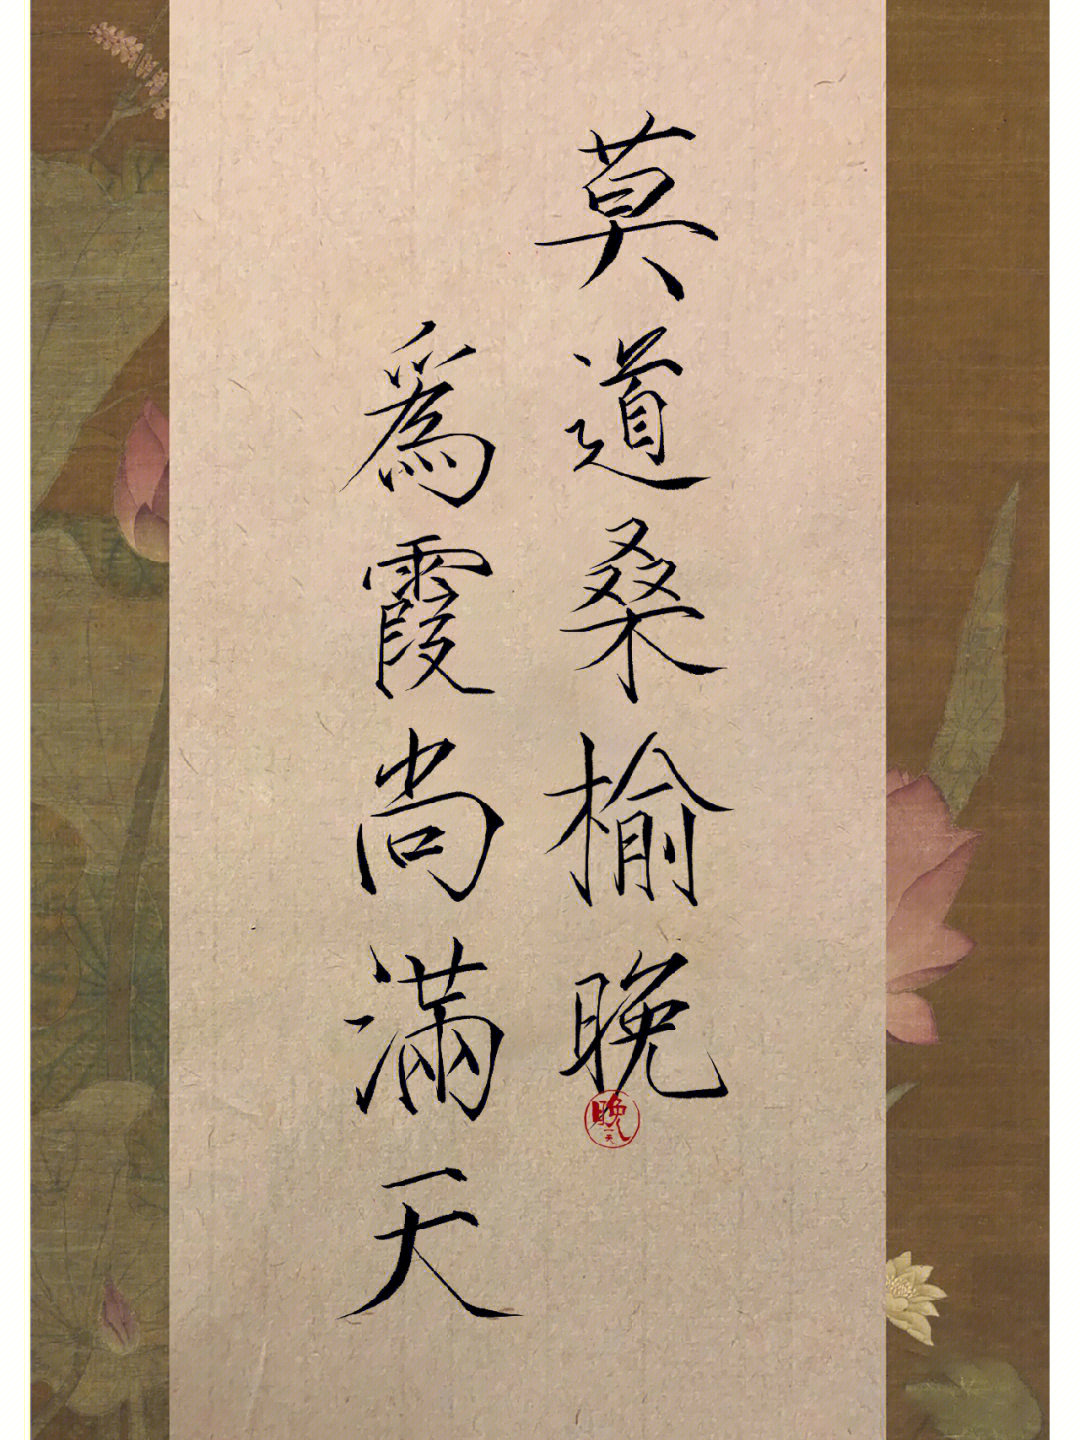 莫道桑榆晚
為霞尚滿天
晚天